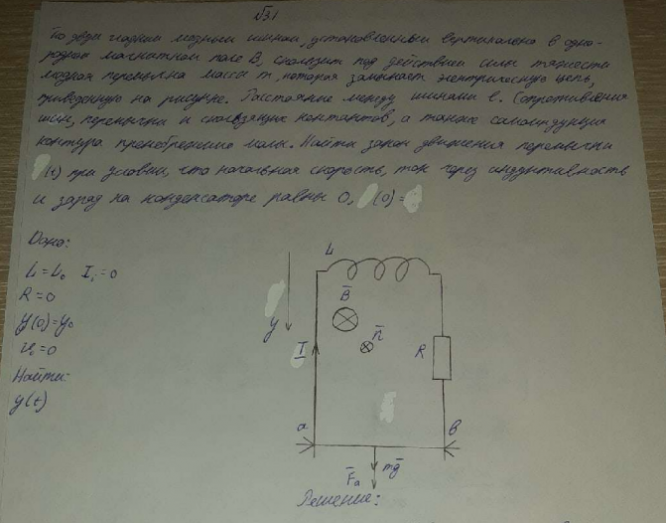 №3.1
По двум гладким медным шинам, установленным вертикально в одно-
родном магнитном поле B, скользит под действием силы тяжести
медная перемычка массы m, которая замыкает электрическую цепь,
приведенную на рисунке. Расстояние между шинами l. Сопротивления
шин, перемычки и скользящих контактов, а также самоиндукция
контура пренебрежимо малы. Найти закон движения перемычки
(t) при условии, что начальная скорость, ток через индуктивность
и заряд на конденсаторе равны 0, (0) =
Дано:
L = L₀ I₁ = 0
R = 0
y(0) = y₀
v₀ = 0
Найти:
y(t)
L
B
n
y
I
R
a
b
mg
Fa
Решение: